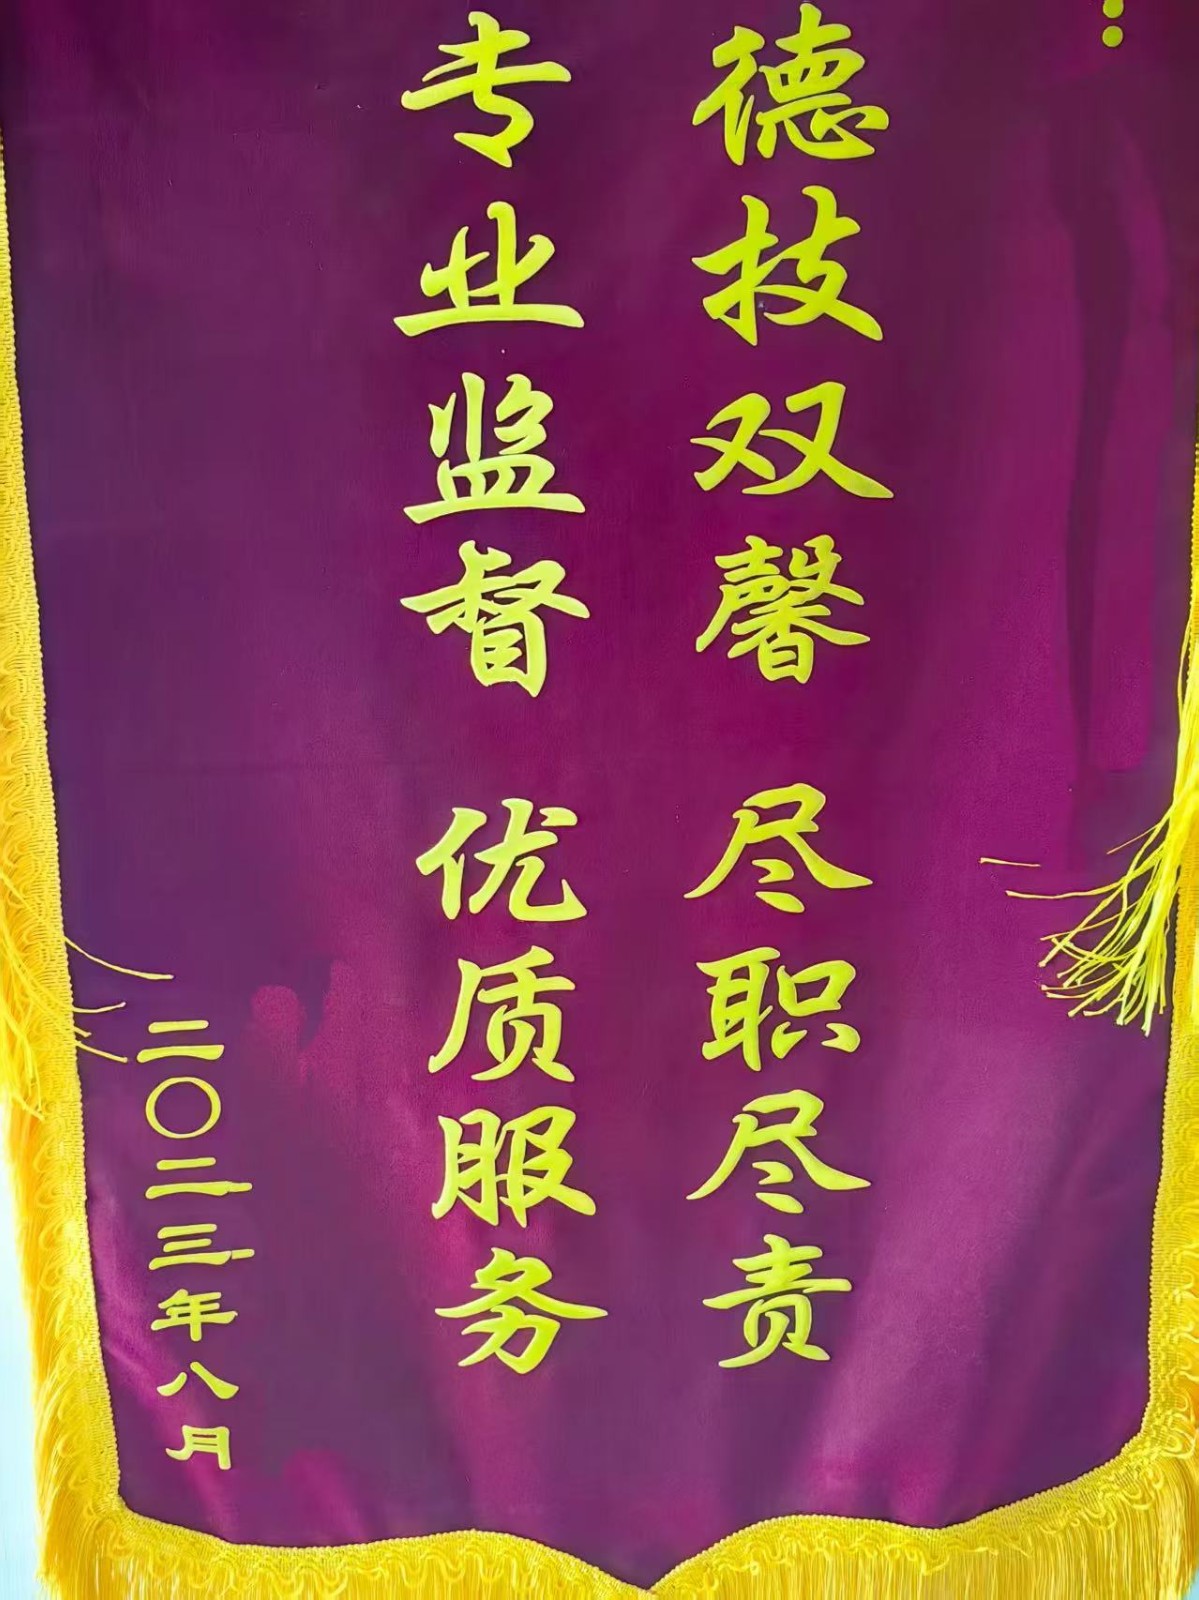 ：
德技双馨 尽职尽责
专业监督 优质服务
二〇二三年八月